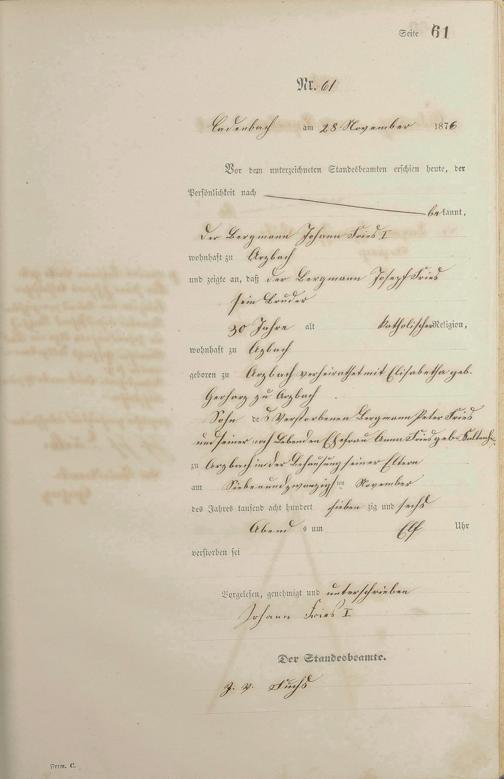 Seite 61
Nr. 61
Cadenbach am 28 November 1876
Vor dem unterzeichneten Standesbeamten erschien heute, der
Persönlichkeit nach
bekannt,
der Bergmann Johann Fries I
wohnhaft zu Arzbach
und zeigte an, daß der Bergmann Joseph Fries
sein Bruder
30 Jahre alt katholischer Religion,
wohnhaft zu Azbach
geboren zu Arzbach verheirathet mit Elisabetha geb.
Gerharz zu Arzbach
Sohn des Verstorbenen Bergmann Peter Fries
und seiner noch Lebenden Ehefrau Anna Fries geb.
zu Arzbach in der Behausung seiner Eltern
am Siebenundzwanzigsten November
des Jahres tausend acht hundert siebenzig und sechs
Abends um Elf Uhr
verstorben sei
Vorgelesen, genehmigt und unterschrieben
Johann Fries I
Der Standesbeamte.
J. V. Fuchs
Form. C.